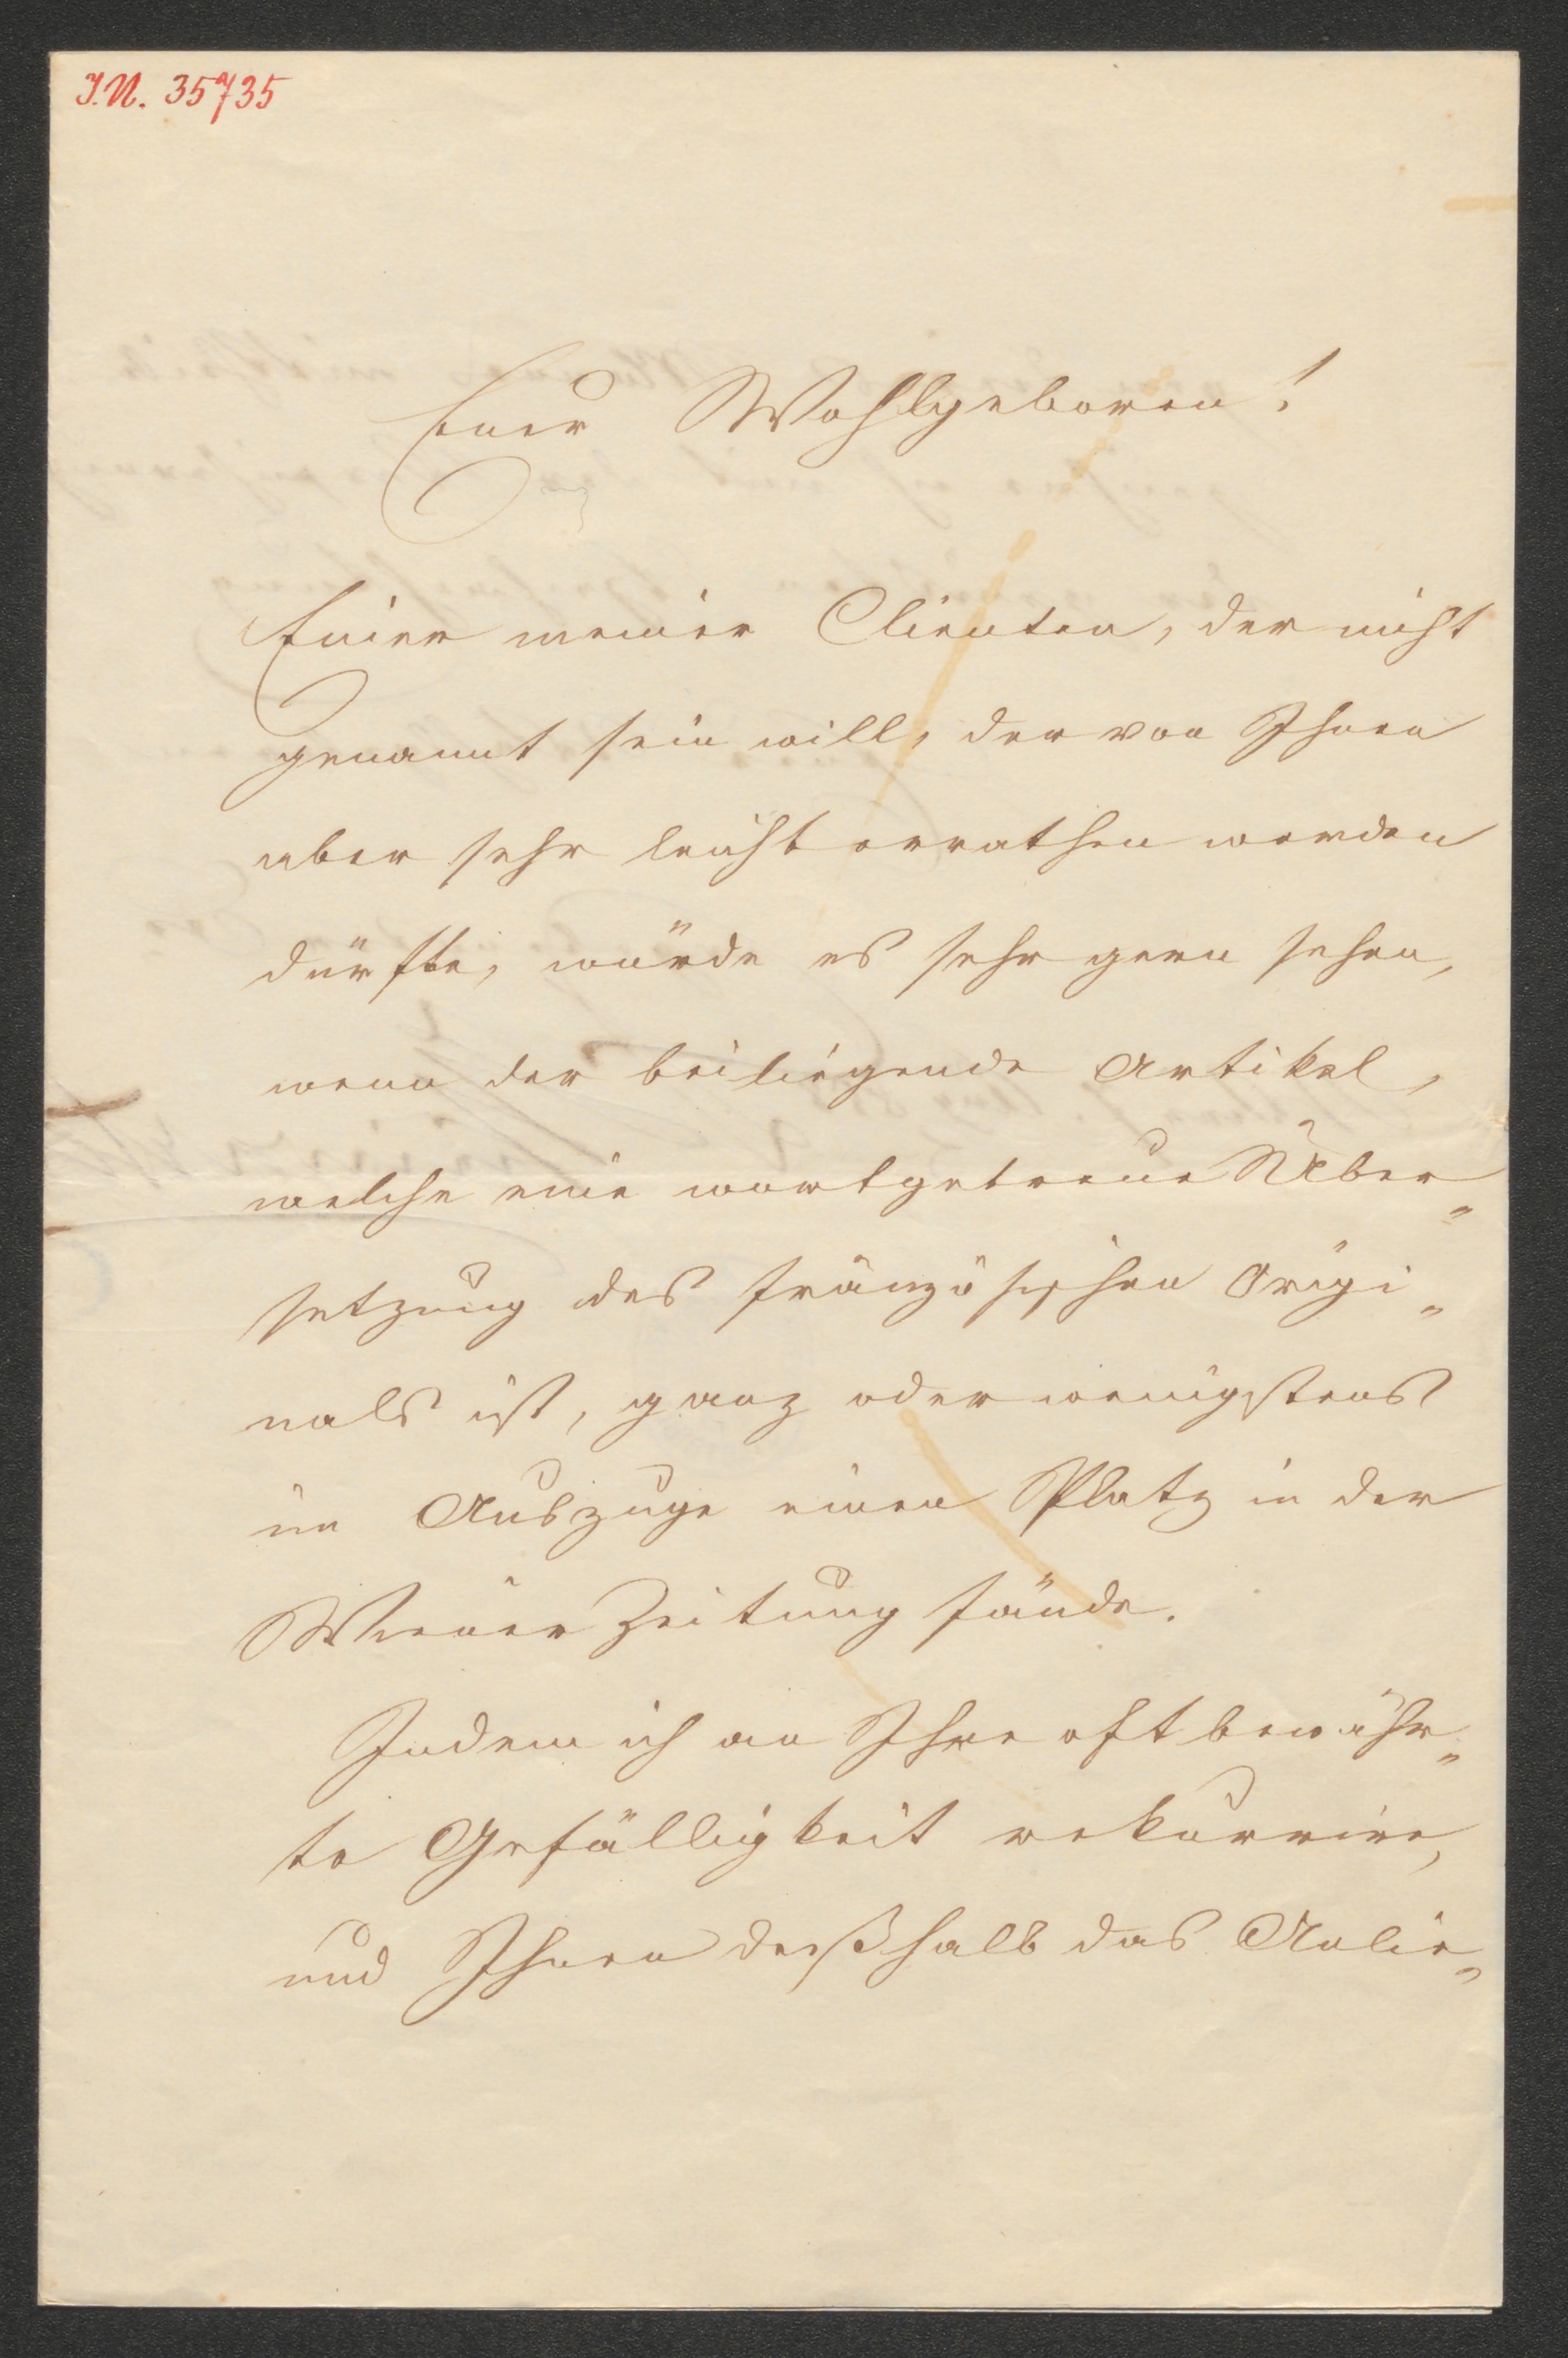 I.N. 35735
Euer Wohlgeboren!
Einer meiner Clienten, der nicht
genannt sein will, der von Ihnen
aber sehr leicht errathen werden
dürfte, würde es sehr gern sehen,
wenn der beiliegende Artikel,
welche eine wortgetreue Ueber-
setzung des französischen Origi-
nals ist, ganz oder wenigstens
im Auszuge einen Platz in der
Wiener Zeitung fände.
Indem ich an Ihre oft bewähr-
te Gefälligkeit rekurrire,
und Ihnen deßhalb das Anlie-